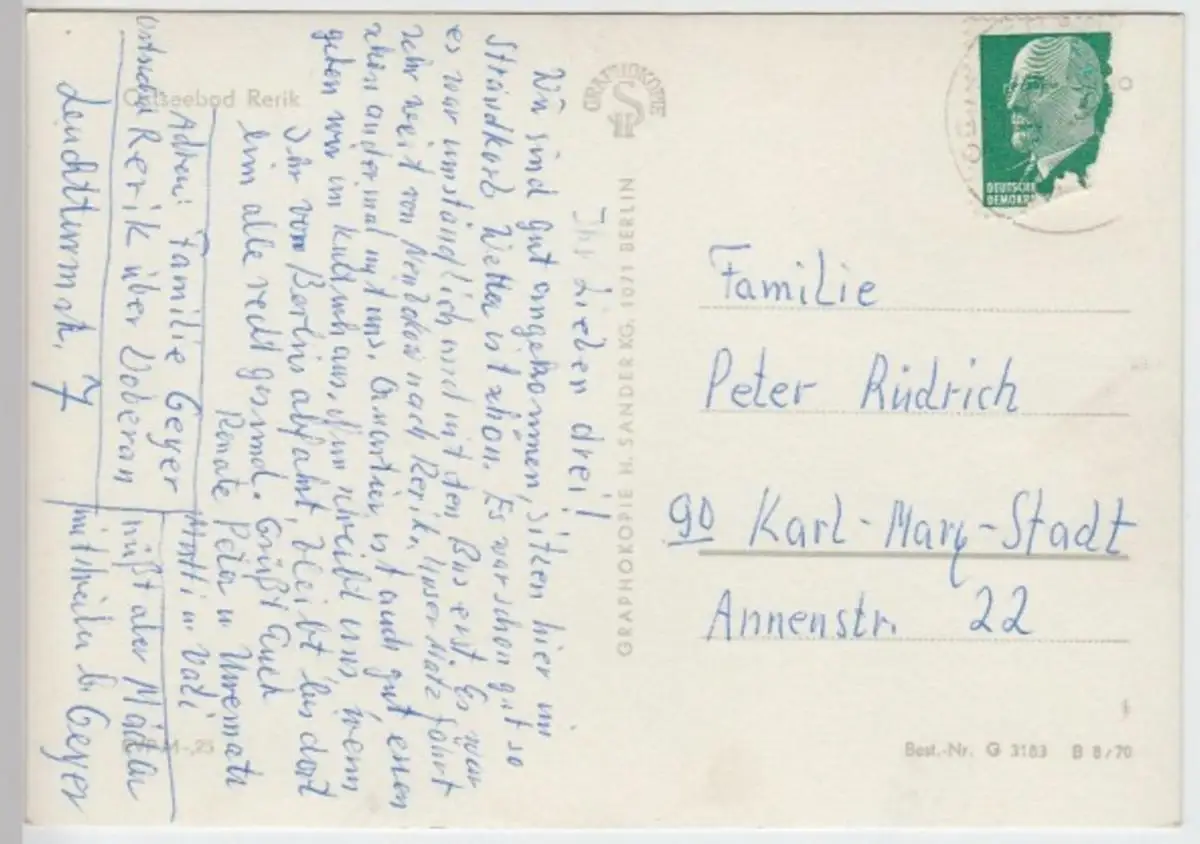 Ostseebad Rerik
Ihr Lieben drei!
Wir sind gut angekommen, sitzen hier im
Strandkorb. Wetter ist schön. Es war schon gut so
es war umständlich und mit dem Bus erst. Es wär
sehr weit von nach Rerik, unser Matz fährt
schon andermal mit uns. Quartier ist auch gut essen
gehen wir im Kulturhaus. Nun schreibt uns wenn
Ihr von Berlin abfahrt, bleibt bis dort
hin alle recht gesund. Grüßt Euch
Renate Peter u.
Mutti u. Vati
Adresse: Familie Geyer
Ostseebad Rerik über Doberan
müßt aber
Leuchtturmstr. 7
mitteilen b. Geyer
EVP M -,25
GRAPHOKOPIE
HS
GRAPHOKOPIE H. SANDER KG. 1071 BERLIN
DEUTSCHE
DEMOKR
Familie
Peter Rüdrich
90 Karl-Marx-Stadt
Annenstr. 22
Best.-Nr. G 3183 B 8/70